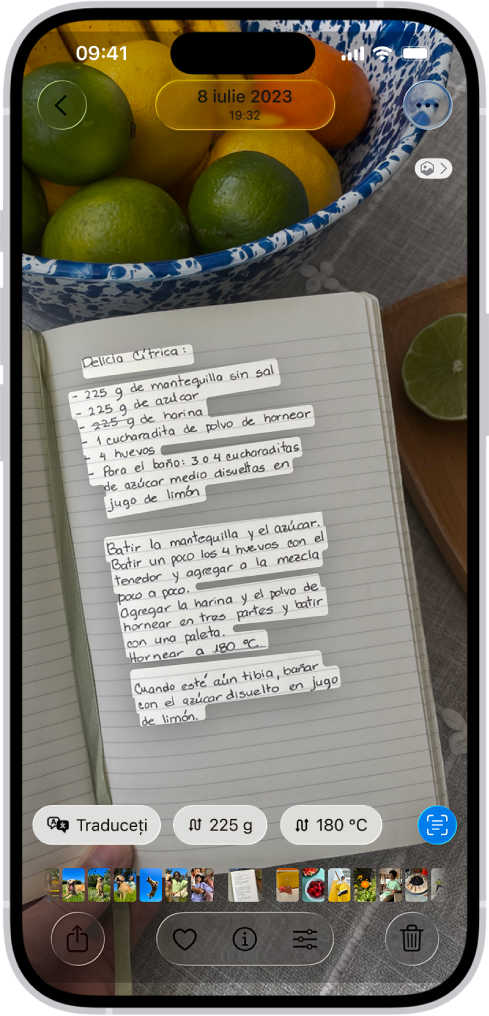 09:41
8 iulie 2023
19:32
Delicia Cítrica:
- 225 g de mantequilla sin sal
- 225 g de azúcar
- 225 g de harina
- 1 cucharadita de polvo de hornear
- 4 huevos
- Para el baño: 3 o 4 cucharaditas
de azúcar medio disueltas en
jugo de limón
Batir la mantequilla y el azúcar.
Batir un poco los 4 huevos con el
tenedor y agregar a la mezcla
poco a poco.
Agregar la harina y el polvo de
hornear en tres partes y batir
con una paleta.
Hornear a 180 °C.
Cuando esté aún tibia, bañar
con el azúcar disuelto en jugo
de limón.
Traduceți
225 g
180 °C